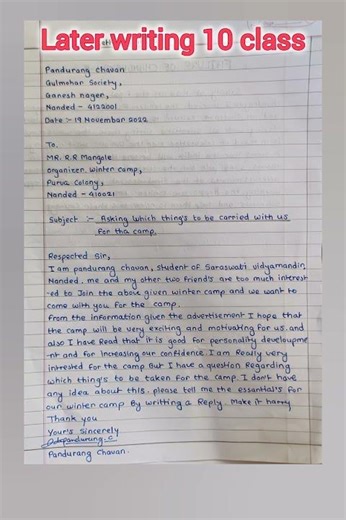 Later writing 10 class
Pandurang Chavan
Gulmohar Soriety,
Ganesh nager,
Nanded - 4122001
Date :- 19 November 2022
To.
MR. R.R Mangole
Organizer. winter camp,
Purva Colony,
Nanded - 410021
Subject :- Asking which thing's to be carried with us
For tha camp.
Respected Sir,
I am pandurang chavan, student of Saraswati vidyamandin
Nanded. me and my other two friend's are too much interest
-ed to Join the above given winter camp and we want to
come with you for the camp.
From the information given the advertisement I hope that
the camp will be very exciting and motivating for us. and
also I have Read that it is good for personality developume
-nt and for increasing our confidence. I am Really very
intrested for the camp But I have a question Regarding
which thing's to be taken for the camp. I don't have
any idea about this. please tell me the essential's for
our winter camp By writting a Reply. Make it harry
Thank you
Your's sincerely
Pandurang Chavan.